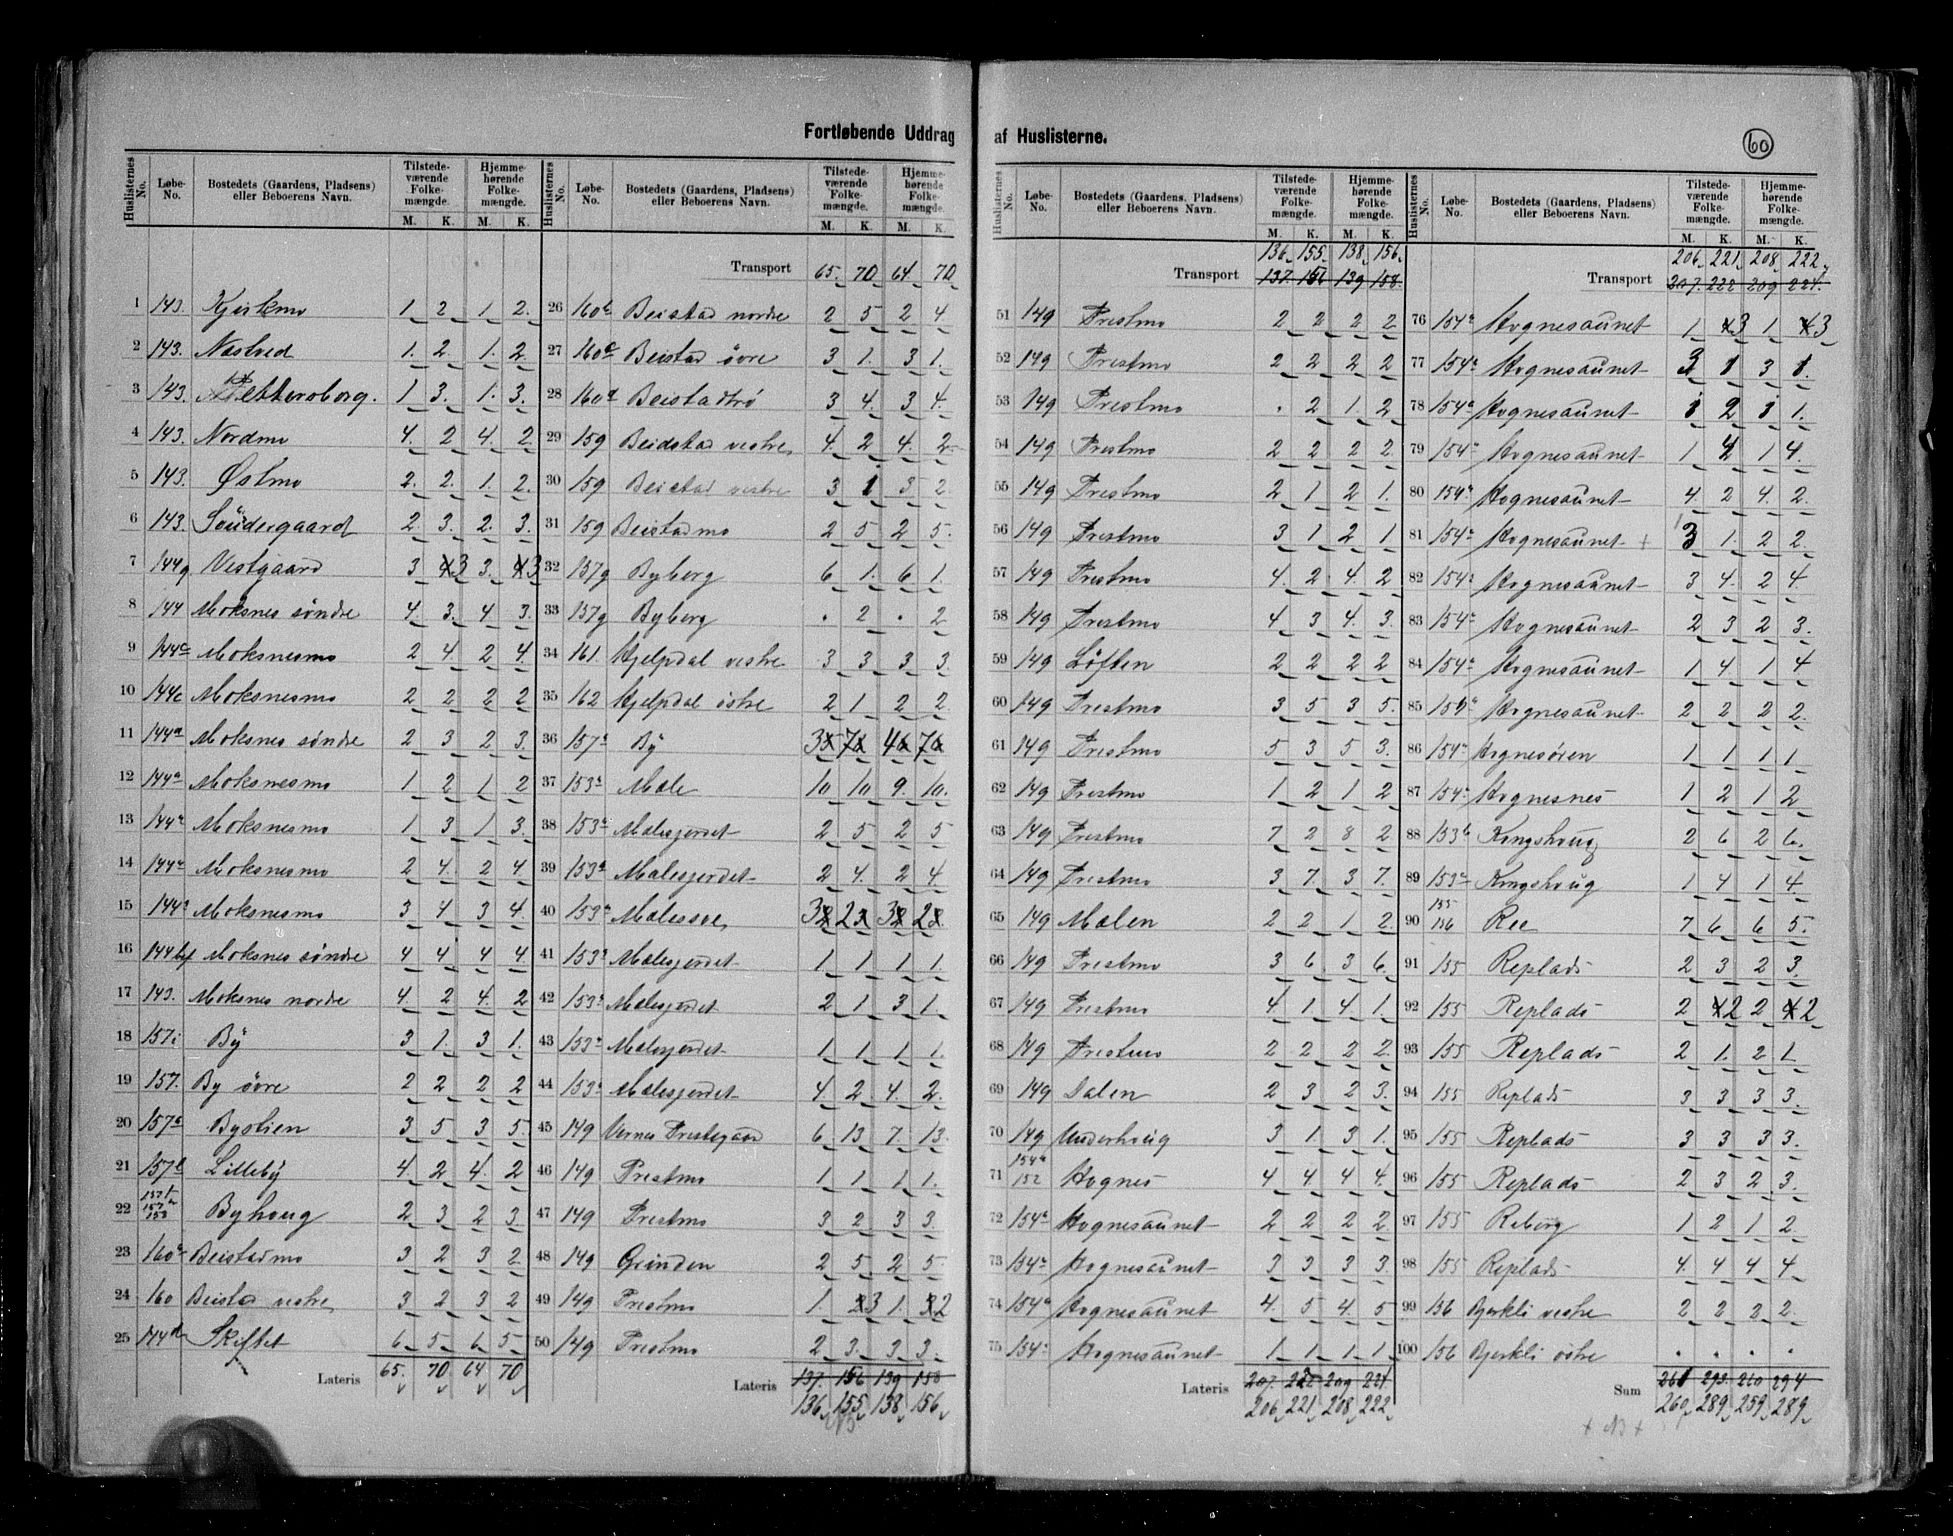 Fortløbende Uddrag af Huslisterne.
60
Huslisternes No. | Løbe-No. | Bostedets (Gaardens, Pladsens) eller Beboerens Navn. | Tilstedeværende Folkemængde. M. K. | Hjemmehørende Folkemængde. M. K.
1 143. Kjirkmo 1 2 1 2.
2 143. Nastved 1. 2 1. 2
3 143. 1 3. 1. 3.
4 143. Nordmo 4. 2 4. 2
5 143. Østmo 2. 2. 1. 2.
6 143. Söndergaard 2. 3. 2. 3.
7 144g Vestgaard 3 3 3. 3
8 144 Moksnes søndre 4. 3. 4 3.
9 144c Moksnesmo 2 4 2 4.
10 144c Moksnesmo 2 2 2 2
11 144a Moksnes søndre 2 3 2 3.
12 144a Moksnesmo 1 2 1 2
13 144a Moksnesmo 1 3 1 3.
14 144a Moksnesmo 2 4. 2 4
15 144a Moksnesmo 3 4 3 4.
16 Moksnes søndre 4 4 4 4.
17 143. Moksnes nordre 4. 2 4. 2
18 157i By 3 1. 3 1.
19 157. By øvre 2 2 2 2
20 157a Bystien 3 5 3 5.
21 157l Lilleby 4. 2 4. 2
22 Byhoug 2 3 2 3.
23 160a Beistadmo 3 2 3 2
24 160 Beistad vestre 3 2 3 2
25 144d Skiftet 6 5 6 5
Lateris 65. 70 64 70
Transport 65. 70 64 70
26 160b Beistad nordre 2 5 2 4
27 160c Beistad øvre 3 1. 3 1.
28 160d Beistadtrø 3 4. 3 4.
29 159 Beidstad vestre 4. 2 4. 2
30 159 Beistad vestre 3 1 3 2
31 159 Beistadmo 2 5 2 5.
32 157g Byberg 6 1. 6 1.
33 157g Byberg . 2 . 2
34 161. Hjelpdal vestre 3 3 3 3.
35 162 Hjelpdal östre 2 1 2 2.
36 157a By 3 7 4 7
37 153a Male 10 10 9. 10.
38 153a Malesjordet 2 5 2 5
39 153a Malesjordet 2 4. 2 4
40 153a 3 2 3 2
41 153a Malesjordet 1 1 1 1.
42 153a Malesjordet 2 1 3 1.
43 153a Malesjordet 1 1 1 1.
44 153a Malesjordet 4 2 4. 2.
45 149 Vernes Prestegaard 6 13 7. 13.
46 149 Prestmo 1 1 1 1.
47 149 Prestmo 3 2 3 3.
48 149 Grinden 2 5 2 5
49 149 Prestmo 1. 3 1. 2
50 149 Prestmo 2 3. 3 3.
Lateris 137. 156 139 158
136 155 138 156
Transport 136 155 138 156
137. 156 139 158.
51 149 Prestmo 2 2 2 2
52 149 Prestmo 2 2 2 2
53 149 Prestmo . 2 1. 2
54 149 Prestmo 2 2 2 2.
55 149 Prestmo 2 1 2 1.
56 149 Prestmo 3 1 2 1
57 149 Prestmo 4. 2 4. 2
58 149 Prestmo 4 3 4. 3.
59 149 Løften 2 2 2 2
60 149 Prestmo 3 5 3 5.
61 149 Prestmo 5 3 5 3.
62 149 Prestmo 1 2 1 2
63 149 Prestmo 7 2 8 2
64 149 Prestmo 3 7. 3 7.
65 149 Malen 2 2 1 2.
66 149 Prestmo 3 6 3 6.
67 149 Prestmo 4 1 4 1.
68 149 Prestmo 2 2 2 2.
69 149 Dalen 2 3 2 3.
70 149 Underhoug 3 1. 3 1.
71 154a 152 Hognes 4 4 4 4.
72 154a Hognesaunet 2 2 2 2
73 154a Hognesaunet 3 3 3 3.
74 154a Hognesaunet 4. 5 4. 5
75 154a Hognesaunet 1 1 1 1
Lateris 207. 222 209 224.
206 221 208 222
Transport 206 221 208 222
207. 222 209 224.
76 154a Hognesaunet 1 3 1 3
77 154a Hognesaunet 3 1 3 1.
78 154a Hognesaunet 1 2 1 1.
79 154a Hognesaunet 1 4 1 4.
80 154a Hognesaunet 4. 2 4. 2.
81 154a Hognesaunet + 3 1. 2 2.
82 154a Hognesaunet 3 4. 2 4
83 154a Hognesaunet 2 3 2 3.
84 154a Hognesaunet 1 4 1 4
85 154a Hognesaunet 2 2 2 2.
86 154a Hognesøren 1 1 1 1
87 154a Hognesnes 1 2 1 2
88 153b Kongshoug 2 6 2 6.
89 153a Kongshoug 1 4 1 4
90 155 156 Ree 7 6 6 5.
91 155 Replads 2 3 2 3.
92 155 Replads 2 2 2 2
93 155 Replads 2 1. 2 1
94 155 Replads 3 3 3 3.
95 155 Replads 3 3 3 3.
96 155 Replads 2 3 2 3.
97 155 Reberg 1 2 1 2
98 155 Replads 4. 4 4 4
99 156 Bjerkli vestre 2 2 2 2.
100 156 Bjerkli östre . . . .
Sum 261 293 260 294
260 289 259 289
+ NB +